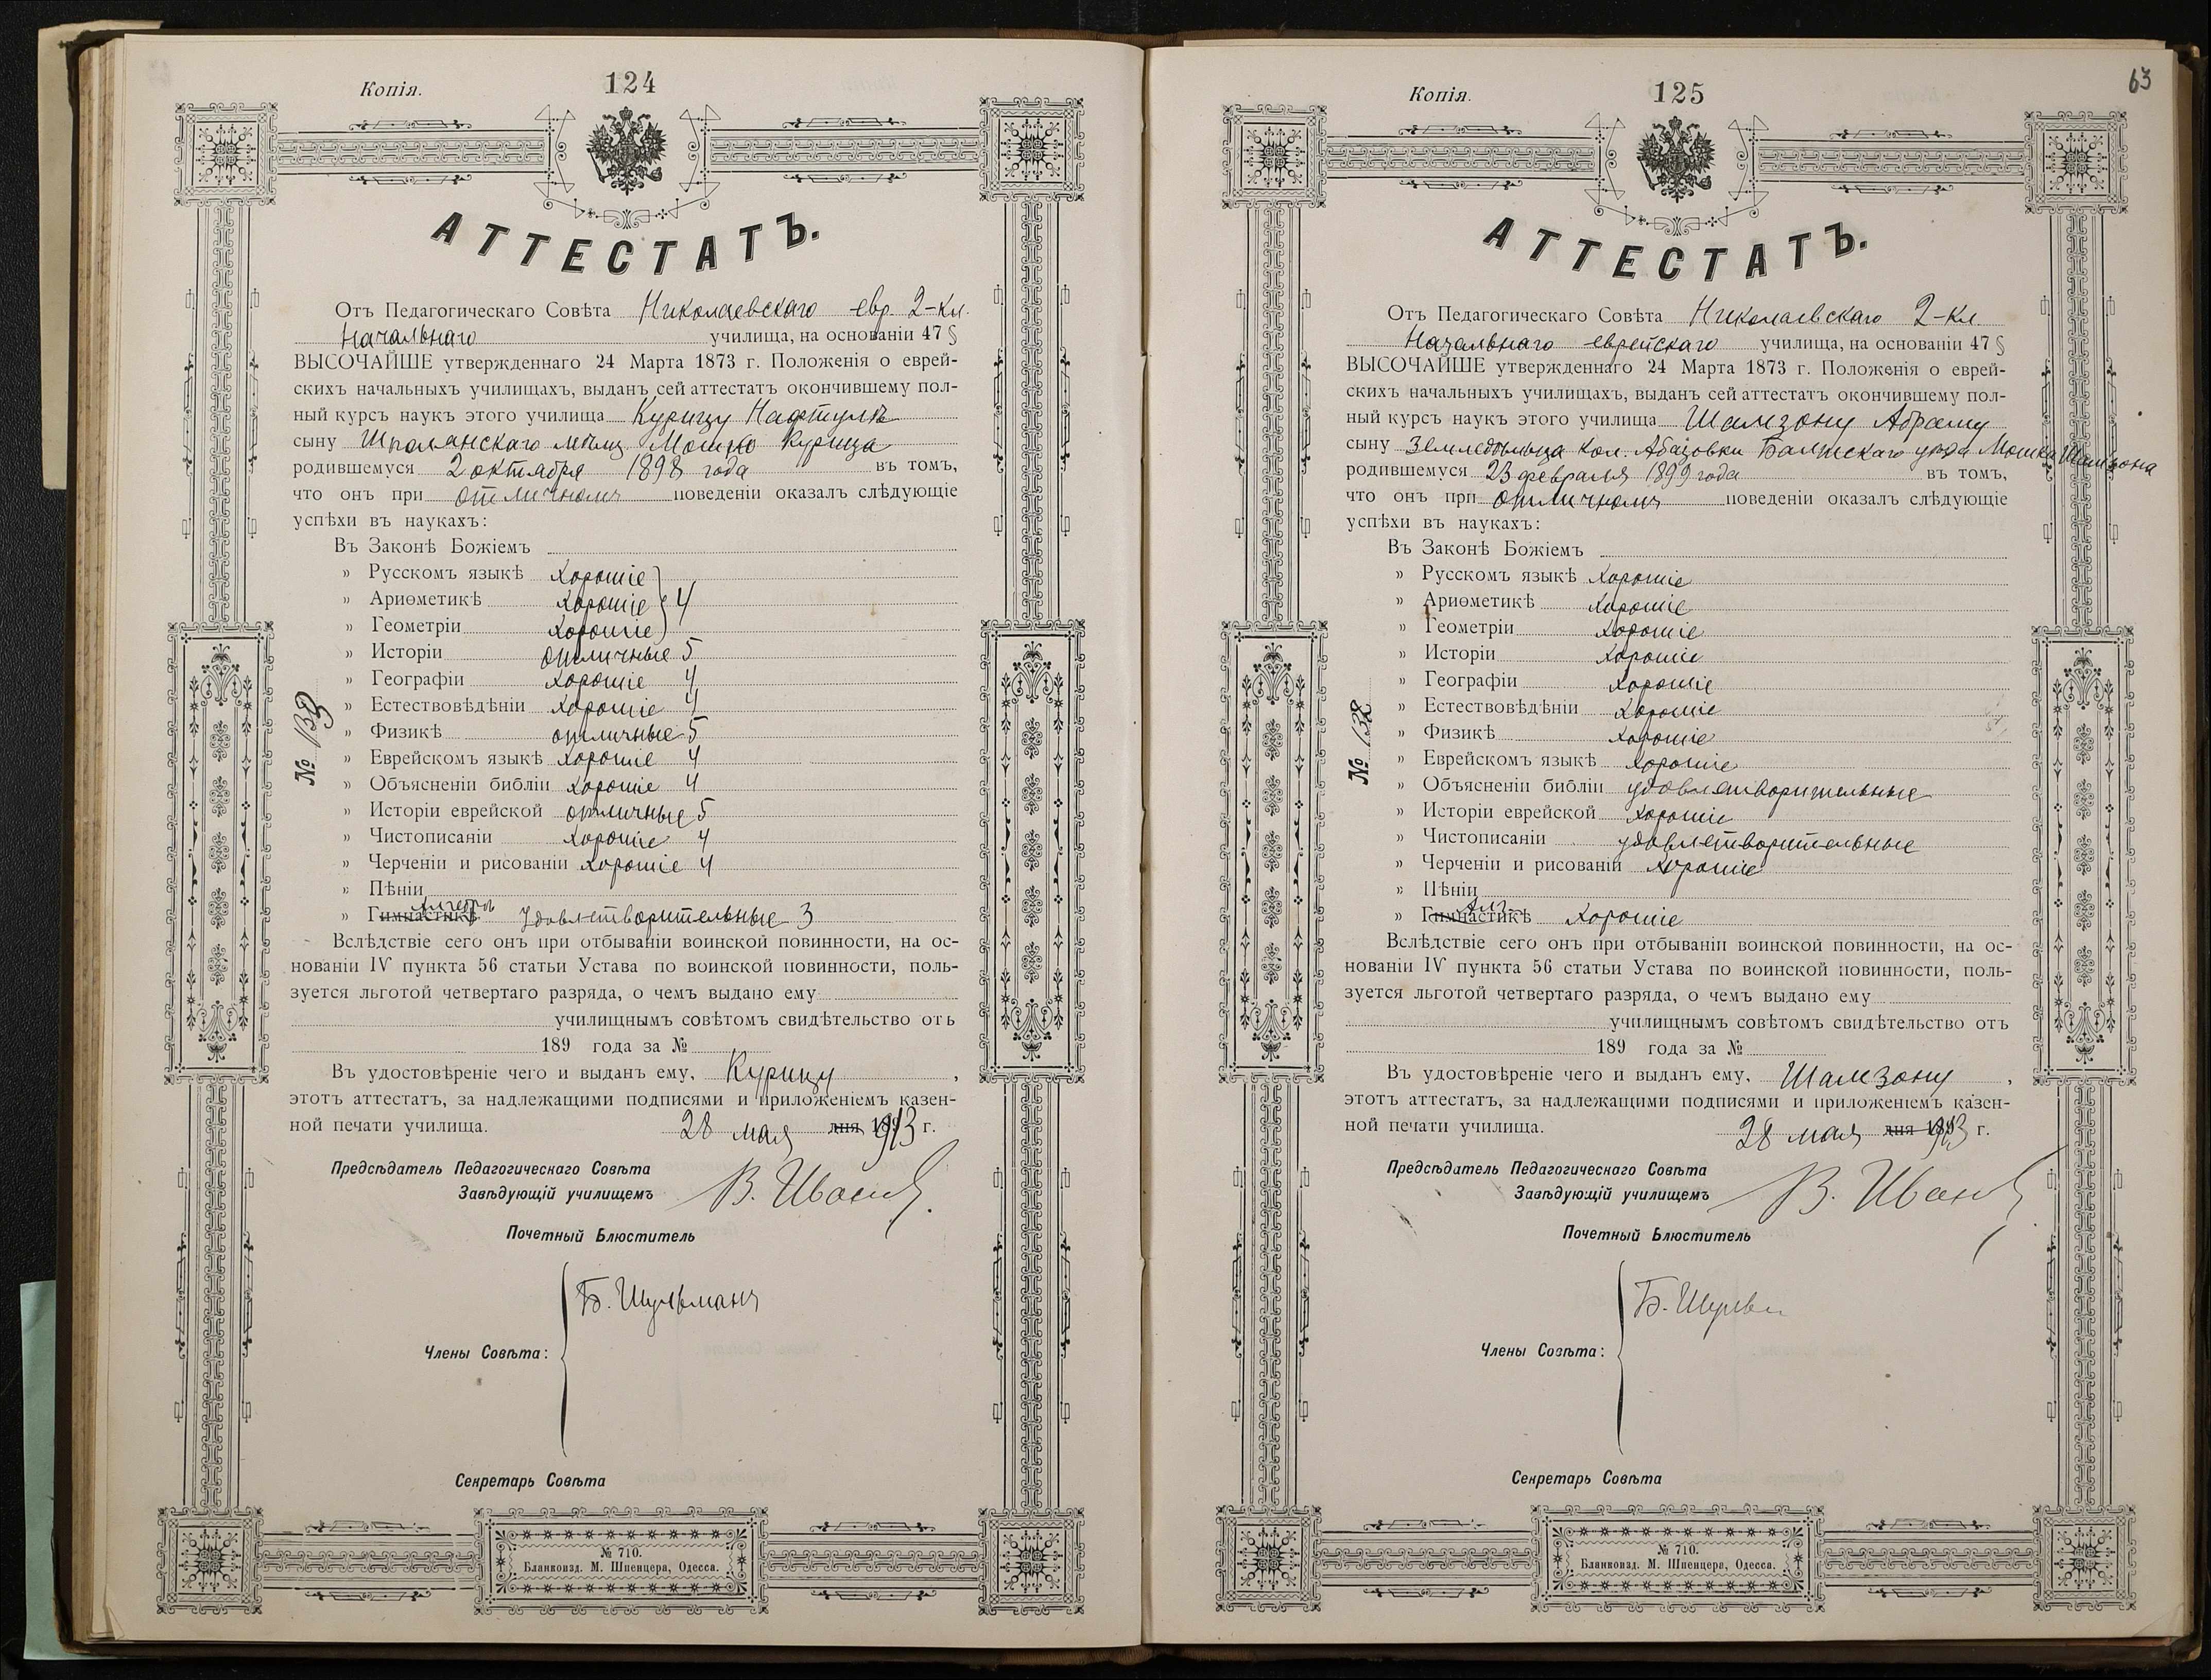 Копія.
124
АТТЕСТАТЪ.
Отъ Педагогическаго Совѣта Николаевскаго евр. 2-кл.
Начальнаго училища, на основаніи 47 §
ВЫСОЧАЙШЕ утвержденнаго 24 Марта 1873 г. Положенія о еврей-
скихъ начальныхъ училищахъ, выданъ сей аттестатъ окончившему пол-
ный курсъ наукъ этого училища Курицу Нафтулѣ
сыну Шполянскаго мѣщ. Мошко Курица
родившемуся 2 октября 1898 года въ томъ,
что онъ при отличномъ поведеніи оказалъ слѣдующіе
успѣхи въ наукахъ:
Въ Законѣ Божіемъ
» Русскомъ языкѣ хорошіе
» Ариѳметикѣ хорошіе 4
» Геометріи хорошіе
» Исторіи отличные 5
» Географіи хорошіе 4
» Естествовѣдѣніи хорошіе 4
» Физикѣ отличные 5
» Еврейскомъ языкѣ хорошіе 4
» Объясненіи библіи хорошіе 4
» Исторіи еврейской отличные 5
» Чистописаніи хорошіе 4
» Черченіи и рисованіи хорошіе 4
» Пѣніи
» Гимнастикѣ Алгебра удовлетворительные 3
№
Вслѣдствіе сего онъ при отбываніи воинской повинности, на ос-
нованіи IV пункта 56 статьи Устава по воинской повинности, поль-
зуется льготой четвертаго разряда, о чемъ выдано ему
училищнымъ совѣтомъ свидѣтельство отъ
189 года за №
Въ удостовѣреніе чего и выданъ ему, Курицу,
этотъ аттестатъ, за надлежащими подписями и приложеніемъ казен-
ной печати училища. 28 мая дня 1913 г.
Предсѣдатель Педагогическаго Совѣта
Завѣдующій училищемъ В.
Почетный Блюститель
Б. Шульманъ
Члены Совѣта:
Секретарь Совѣта
№ 710.
Бланкоизд. М. Шпенцера, Одесса.
Копія.
125
63
АТТЕСТАТЪ.
Отъ Педагогическаго Совѣта Николаевскаго 2-кл.
Начальнаго еврейскаго училища, на основаніи 47 §
ВЫСОЧАЙШЕ утвержденнаго 24 Марта 1873 г. Положенія о еврей-
скихъ начальныхъ училищахъ, выданъ сей аттестатъ окончившему пол-
ный курсъ наукъ этого училища Шамзону Абраму
сыну Земледѣльца кол. Абазовки Балтскаго уѣзда Мошка Шамзона
родившемуся 23 февраля 1899 года въ томъ,
что онъ при отличномъ поведеніи оказалъ слѣдующіе
успѣхи въ наукахъ:
Въ Законѣ Божіемъ
» Русскомъ языкѣ хорошіе
» Ариѳметикѣ хорошіе
» Геометріи хорошіе
» Исторіи хорошіе
» Географіи хорошіе
» Естествовѣдѣніи хорошіе
» Физикѣ хорошіе
» Еврейскомъ языкѣ хорошіе
» Объясненіи библіи удовлетворительные
» Исторіи еврейской хорошіе
» Чистописаніи удовлетворительные
» Черченіи и рисованіи хорошіе
» Пѣніи
» Гимнастикѣ Алг. хорошіе
№ 138
Вслѣдствіе сего онъ при отбываніи воинской повинности, на ос-
нованіи IV пункта 56 статьи Устава по воинской повинности, поль-
зуется льготой четвертаго разряда, о чемъ выдано ему
училищнымъ совѣтомъ свидѣтельство отъ
189 года за №
Въ удостовѣреніе чего и выданъ ему, Шамзону,
этотъ аттестатъ, за надлежащими подписями и приложеніемъ казен-
ной печати училища. 28 мая дня 1913 г.
Предсѣдатель Педагогическаго Совѣта
Завѣдующій училищемъ В.
Почетный Блюститель
Б.
Члены Совѣта:
Секретарь Совѣта
№ 710.
Бланкоизд. М. Шпенцера, Одесса.